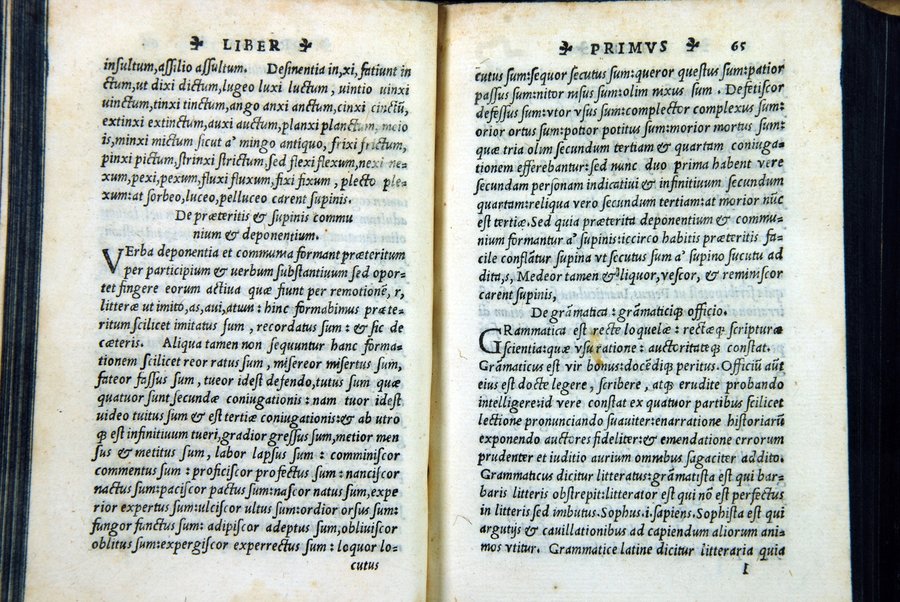 LIBER
insultum,assilio assultum. Desinentia in,xi,fatiunt in
ctum,ut dixi dictum,lugeo luxi luctum, uintio uinxi
uinctum,tinxi tinctum,ango anxi anctum,cinxi cinctũ,
extinxi extinctum,auxi auctum,planxi planctum, meio
is,minxi mictum sicut a' mingo antiquo, frixi frictum,
pinxi pictum,strinxi strictum,sed flexi flexum,nexi ne-
xum,pexi,pexum,fluxi fluxum,fixi fixum, plecto ple-
xum:at sorbeo,luceo,pelluceo carent supinis.
De præteritis & supinis commu
nium & deponentium.
VErba deponentia et communia formant præteritum
per participium & uerbum substantiuum sed opor-
tet fingere eorum actiua quæ fiunt per remotionẽ, r,
litteræ ut imito,as,aui,atum: hinc formabimus præte-
ritum scilicet imitatus sum, recordatus sum: & sic de
cæteris. Aliqua tamen non sequuntur hanc forma-
tionem scilicet reor ratus sum, misereor misertus sum,
fateor fassus sum, tueor idest defendo,tutus sum quæ
quatuor sunt secundæ coniugationis: nam tuor idest
uideo tuitus sum & est tertiæ coniugationis:& ab utro
q; est infinitiuum tueri,gradior gressus sum,metior men
sus & metitus sum, labor lapsus sum: comminiscor
commentus sum: proficiscor profectus sum: nanciscor
nactus sum:paciscor pactus sum:nascor natus sum,expe
rior expertus sum:ulciscor ultus sum:ordior orsus sum:
fungor functus sum: adipiscor adeptus sum,obliuiscor
oblitus sum:expergiscor experrectus sum: loquor lo-
cutus
PRIMVS 65
cutus sum:sequor secutus sum:queror questus sum:patior
passus sum:nitor nisus sum:olim nixus sum. Defetiscor
defessus sum:vtor vsus sum:complector complexus sum:
orior ortus sum:potior potitus sum:morior mortus sum:
quæ tria olim secundum tertiam & quartam coniuga-
tionem efferebantur:sed nunc duo prima habent vere
secundam personam indicatiui & infinitiuum secundum
quartam:reliqua vero secundum tertiam:at morior nũc
est tertiæ. Sed quia præterita deponentium & commu-
nium formantur a' supinis:iccirco habitis præteritis fa-
cile conflãtur supina vt secutus sum a' supino sucutu ad
dita,s, Medeor tamen & liquor,vescor, & reminiscor
carent supinis,
De grãmatica: grãmaticiq; officio.
GRammatica est recte loquelæ: rectæq; scripturæ
scientia:quæ vsu ratione: auctoritateq; constat.
Grãmaticus est vir bonus:docẽdiq; peritus. Officiũ aũt
eius est docte legere, scribere, atq; erudite probando
intelligere:id vere constat ex quatuor partibus scilicet
lectione pronunciando suauiter:enarratione historiarũ
exponendo auctores fideliter:& emendatione errorum
prudenter et iuditio aurium omnibus sagaciter addito.
Grammaticus dicitur litteratus:grãmatista est qui bar-
baris litteris obstrepit:litterator est qui nõ est perfectus
in litteris sed imbutus. Sophus.i.sapiens. Sophista est qui
argutijs & cauillationibus ad capiendum aliorum ani-
mos vtitur. Grammatice latine dicitur litteraria quia
I